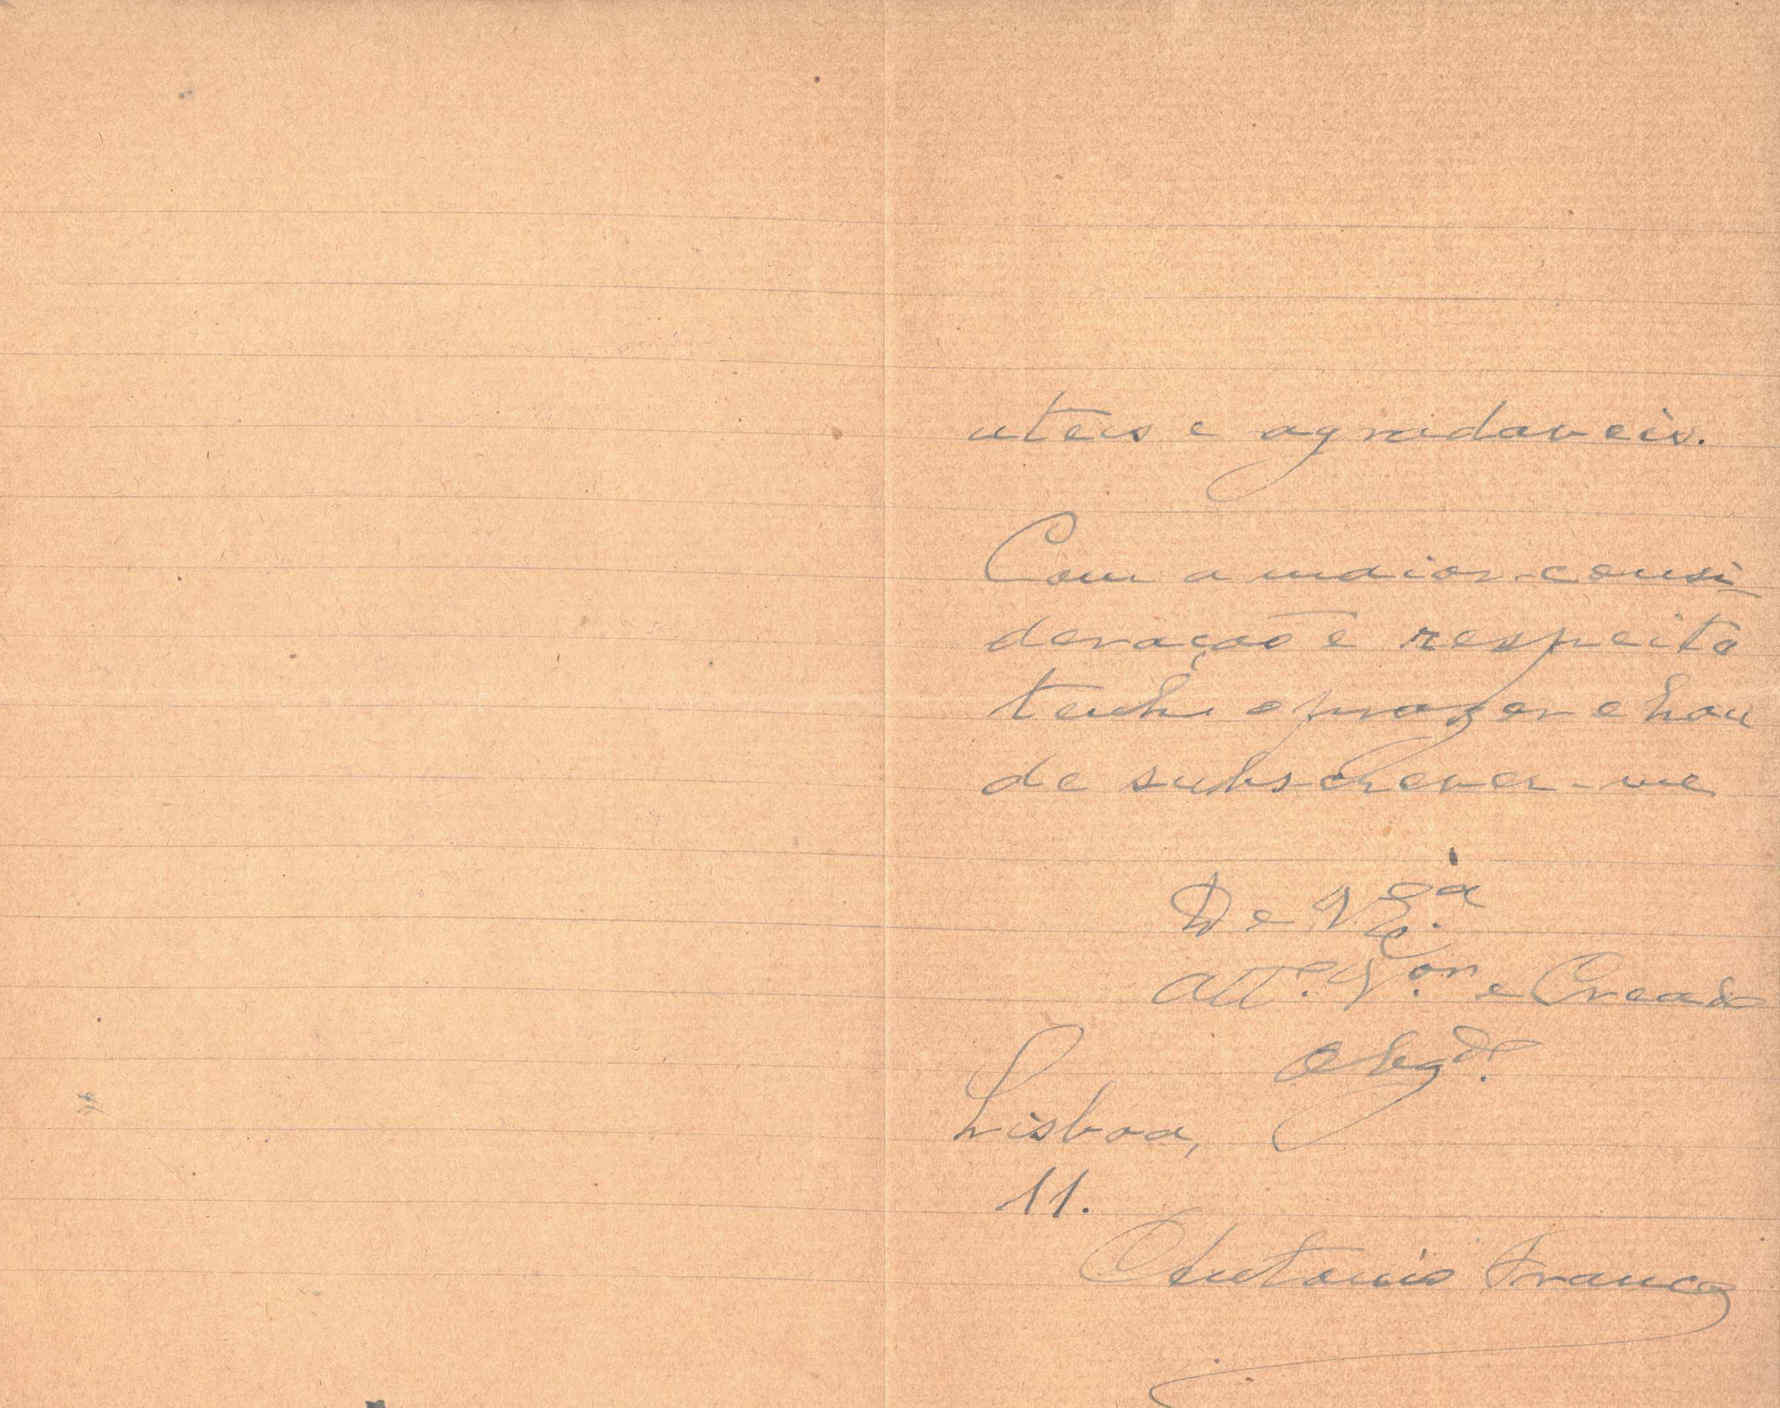 uteis e agradaveis.
Com a maior consi-
deração e respeito
tenho o prazer e hon
de subscrever-me
De V. Ex.ª
Att.º V.or e Creado
Obgd.º
Lisboa,
11.
Antonio Franco